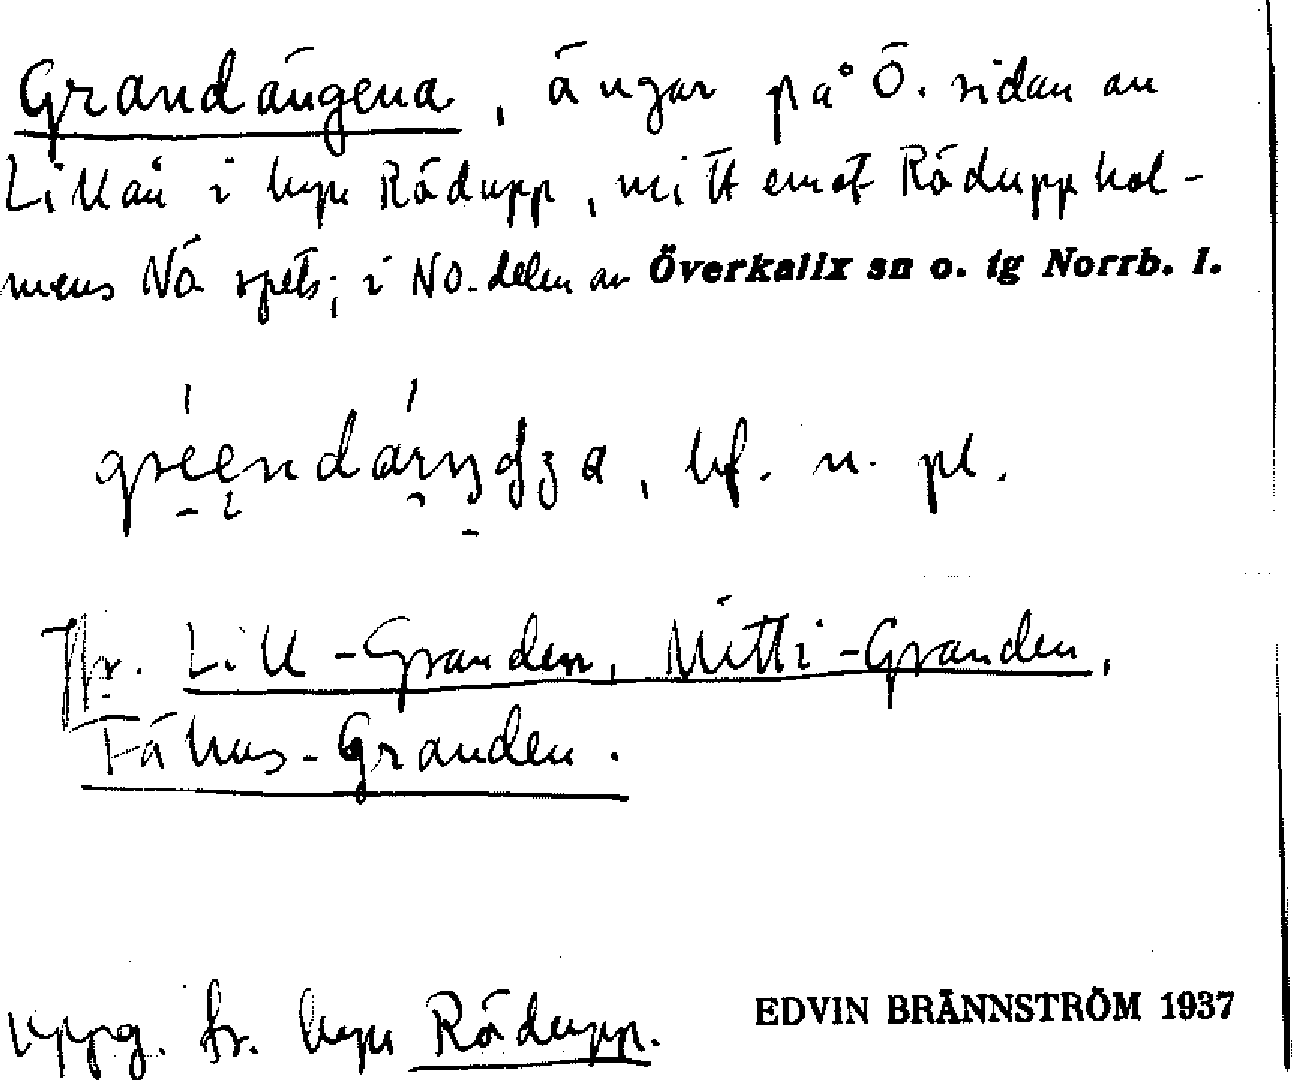 Grandängena, ängar på Ö. sidan av
Lillån i byn Rödupp, mitt emot Rödupphol-
mens NÖ spets; i NO. delen av Överkalix sn o. tg Norrb. l.
bf. n. pl.
Jfr. Lill-Granden, Mitti-Granden,
Fähus-Granden.
uppg. fr. byn Rödupp.
EDVIN BRÄNNSTRÖM 1937